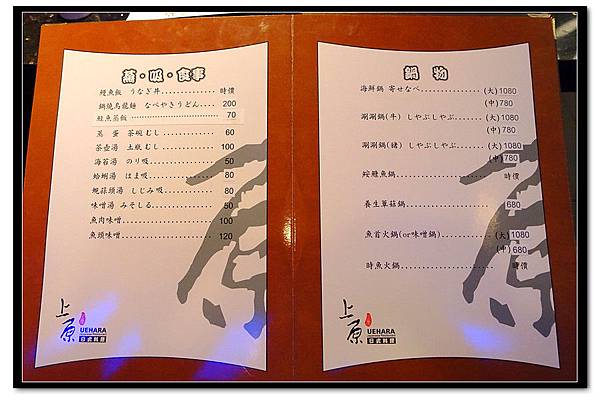 蒸・吸・食事
鰻魚飯 うなぎ丼............... 時價
鍋燒烏龍麵 なべやきうどん.... 200
鮭魚蒸飯 ........................ 70
蒸 蛋 茶碗むし................ 60
茶壺湯 土瓶むし............... 100
海苔湯 のり吸.................. 50
蛤蜊湯 はま吸.................. 80
蜆蒜頭湯 しじみ吸............. 80
味噌湯 みそしる................ 50
魚肉味噌......................... 90
魚頭味噌......................... 120
上原
UEHARA
日式料理
鍋 物
海鮮鍋 寄せなべ............... (大) 1080
(中) 780
涮涮鍋(牛) しゃぶしゃぶ...... (大) 1080
(中) 780
涮涮鍋(豬) しゃぶしゃぶ...... (大) 1080
(中) 780
鮟鱇魚鍋......................... 時價
養生草菇鍋...................... 680
魚首火鍋(or味噌鍋)............ (大) 1080
(中) 680
時魚火鍋......................... 時價
上原
UEHARA
日式料理